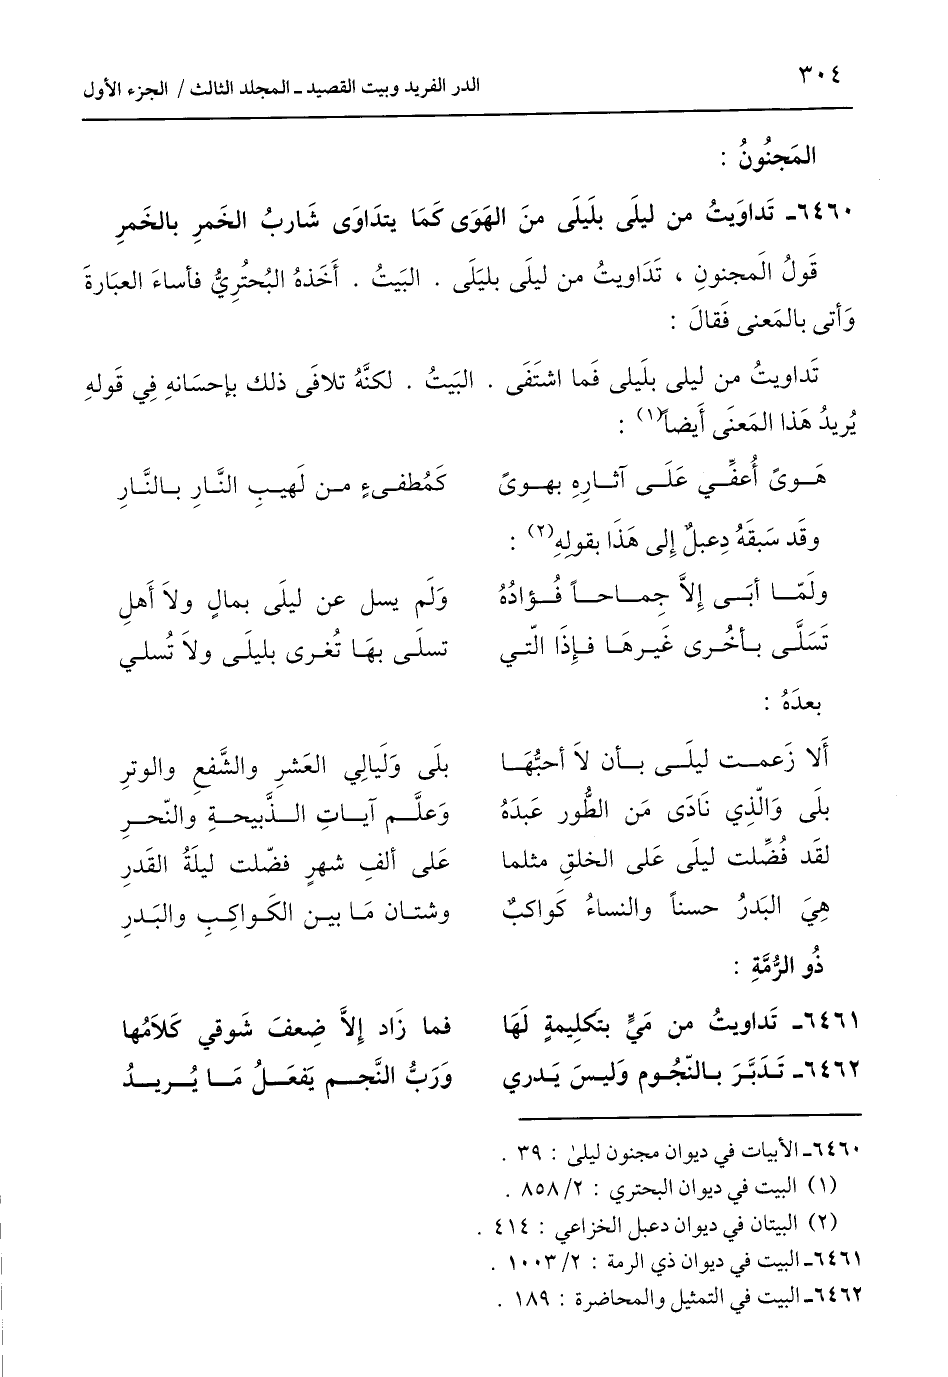 ٣٠٤ الدر الفريد وبيت القصيد ـ المجلد الثالث / الجزء الأول
المَجنُونُ :
٦٤٦٠ـ تَداوَيتُ من ليلَى بلَيلَى منَ الهَوَى كَمَا يتدَاوَى شَاربُ الخَمرِ بالخَمرِ
قَولُ المجنونِ ، تَدَاويتُ من ليلَى بليلَى . البَيتُ . أَخَذهُ البُحتُريُّ فأساءَ العبَارةَ
وَأتى بالمَعنى فَقالَ :
تَداويتُ من ليلى بلَيلى فَما اشتَفَى . البَيتُ . لكنَّهُ تلافَى ذلك بإحسَانهِ فِي قَولهِ
يُريدُ هَذا المَعنَى أَيضاً(١) :
هَـوىً أُعفِّـي عَلَـى آثـارِهِ بهـوىً كَمُطفـىءٍ مـن لَهيـبِ النَّـارِ بـالنَّـارِ
وقَد سَبقَهُ دِعبلٌ إلى هَذَا بقولِهِ(٢) :
ولَمّـا أبَـى إلاَّ جِماحـاً فُـؤادُهُ وَلَم يسل عن ليلَى بمالٍ ولاَ أهلِ
تَسَلَّى بـأُخـرى غَيـرهَـا فـإذَا الّتـي تسلَـى بهَـا تُغـرى بليلَـى ولاَ تُسلي
بعدَهُ :
أَلا زَعمـت ليلَـى بـأن لاَ أحبُّهَـا بلَى وَلَيالِي العَشرِ والشَّفعِ والوترِ
بلَى وَالّذِي نَادَى مَن الطُّور عَبدَهُ وَعلَّـم آيـاتِ الـذَّبيحـةِ والنّحـرِ
لقَد فُضِّلت ليلَى عَلى الخلقِ مثلما عَلى ألفِ شهرٍ فضّلت ليلَةُ القَدرِ
هِيَ البَدرُ حسناً والنساءُ كَواكبٌ وشتـان مَـا بيـن الكَـواكِـبِ والبَـدرِ
ذُو الرُّمَّةِ :
٦٤٦١ـ تَداويتُ من مَيٍّ بتَكلِيمةٍ لَهَا فما زَاد إلاَّ ضِعفَ شَوقي كَلاَمُها
٦٤٦٢ـ تَـدَبَّـرَ بـالنّجُـوم وَليـسَ يَـدري وَرَبُّ النَّجـم يَفعَـلُ مَـا يُـريـدُ
٦٤٦٠ـ الأبيات في ديوان مجنون ليلىٰ : ٣٩ .
(١) البيت في ديوان البحتري : ٢/ ٨٥٨ .
(٢) البيتان في ديوان دعبل الخزاعي : ٤١٤ .
٦٤٦١ـ البيت في ديوان ذي الرمة : ٢/ ١٠٠٣ .
٦٤٦٢ـ البيت في التمثيل والمحاضرة : ١٨٩ .